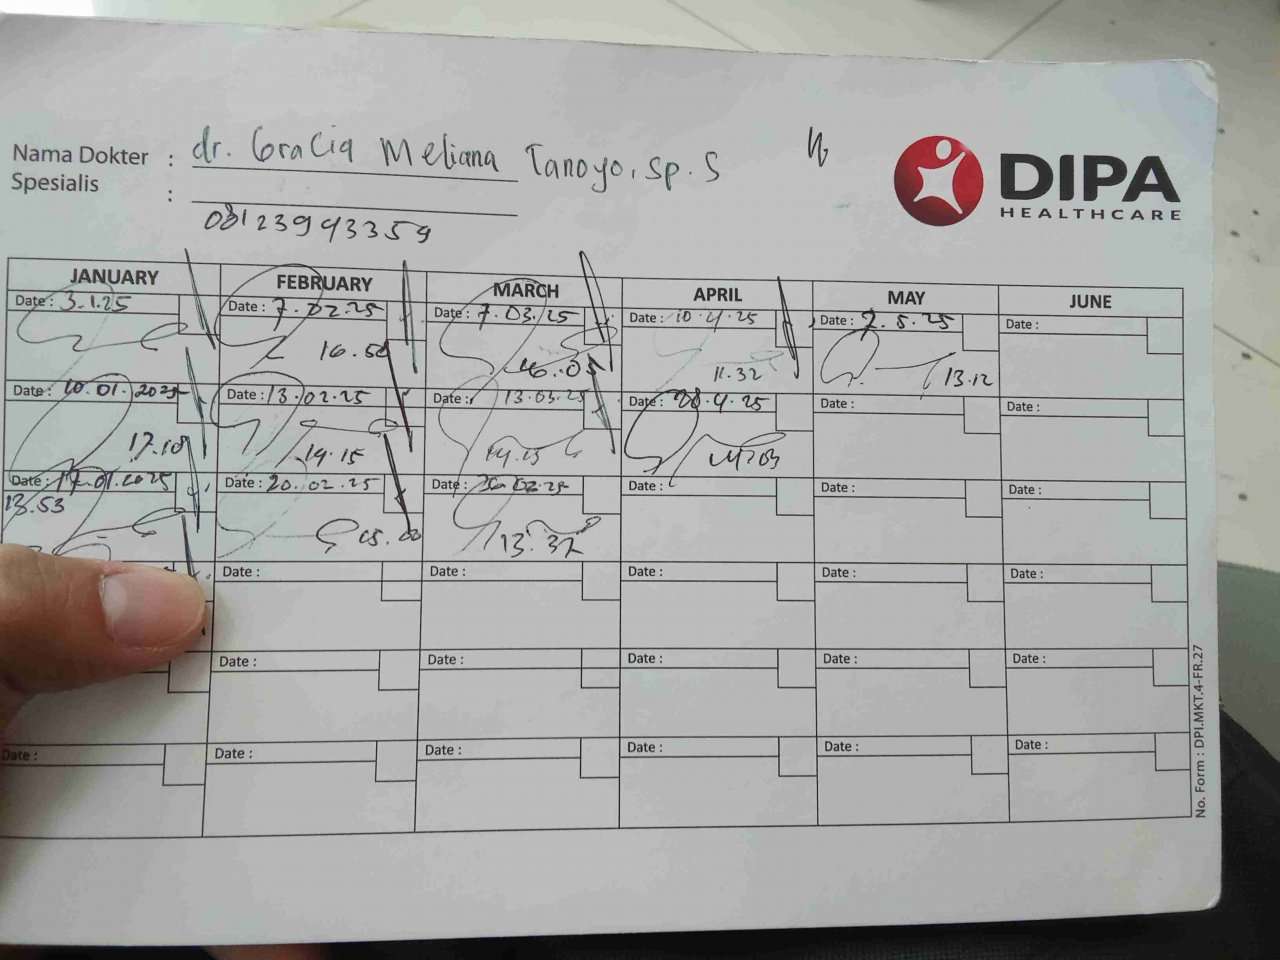 Nama Dokter : dr. Gracia Meliana Tanoyo, Sp. S
Spesialis :
08123993359
DIPA
HEALTHCARE
JANUARY FEBRUARY MARCH APRIL MAY JUNE
Date : 3.1.25 Date : 7.02.25 Date : 7.03.25 Date : 10.4.25 Date : 2.5.25 Date :
16.50 16.05 11.32 13.12
Date : 10.01.2025 Date : 13.02.25 Date : 13.03.25 Date : 28.4.25 Date : Date :
17.18 14.15 14.15
Date : 17.01.2025 Date : 20.02.25 Date : Date : Date : Date :
13.53 15.00 13.37
Date : Date : Date : Date : Date :
Date : Date : Date : Date : Date :
Date : Date : Date : Date : Date : Date :
No. Form : DPI.MKT.4-FR.27